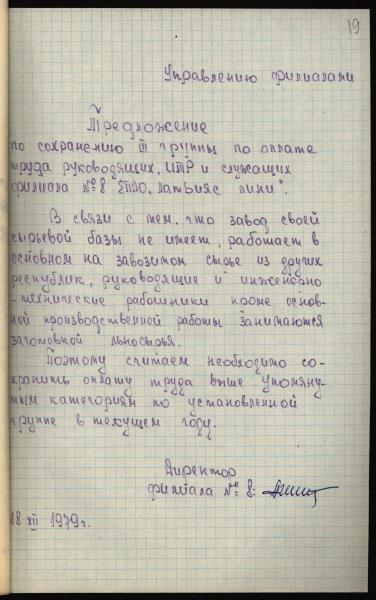 19
Управлению филиалами
Предложение
по сохранению III группы по оплате
труда руководящих, ИТР и служащих
филиала №8 ЕПЛО „Латвияс лини".
В связи с тем, что завод своей
сырьевой базы не имеет, работает в
основном на завозимом сырье из других
республик, руководящие и инженерно
-технические работники кроме основ-
ной производственной работы занимаются
заготовкой льносырья.
Поэтому считаем необходимо со-
хранить оплату труда выше упомяну-
тым категориям по установленной
группе в текущем году.
Директор
филиала № 8:
18 XII 1979г.